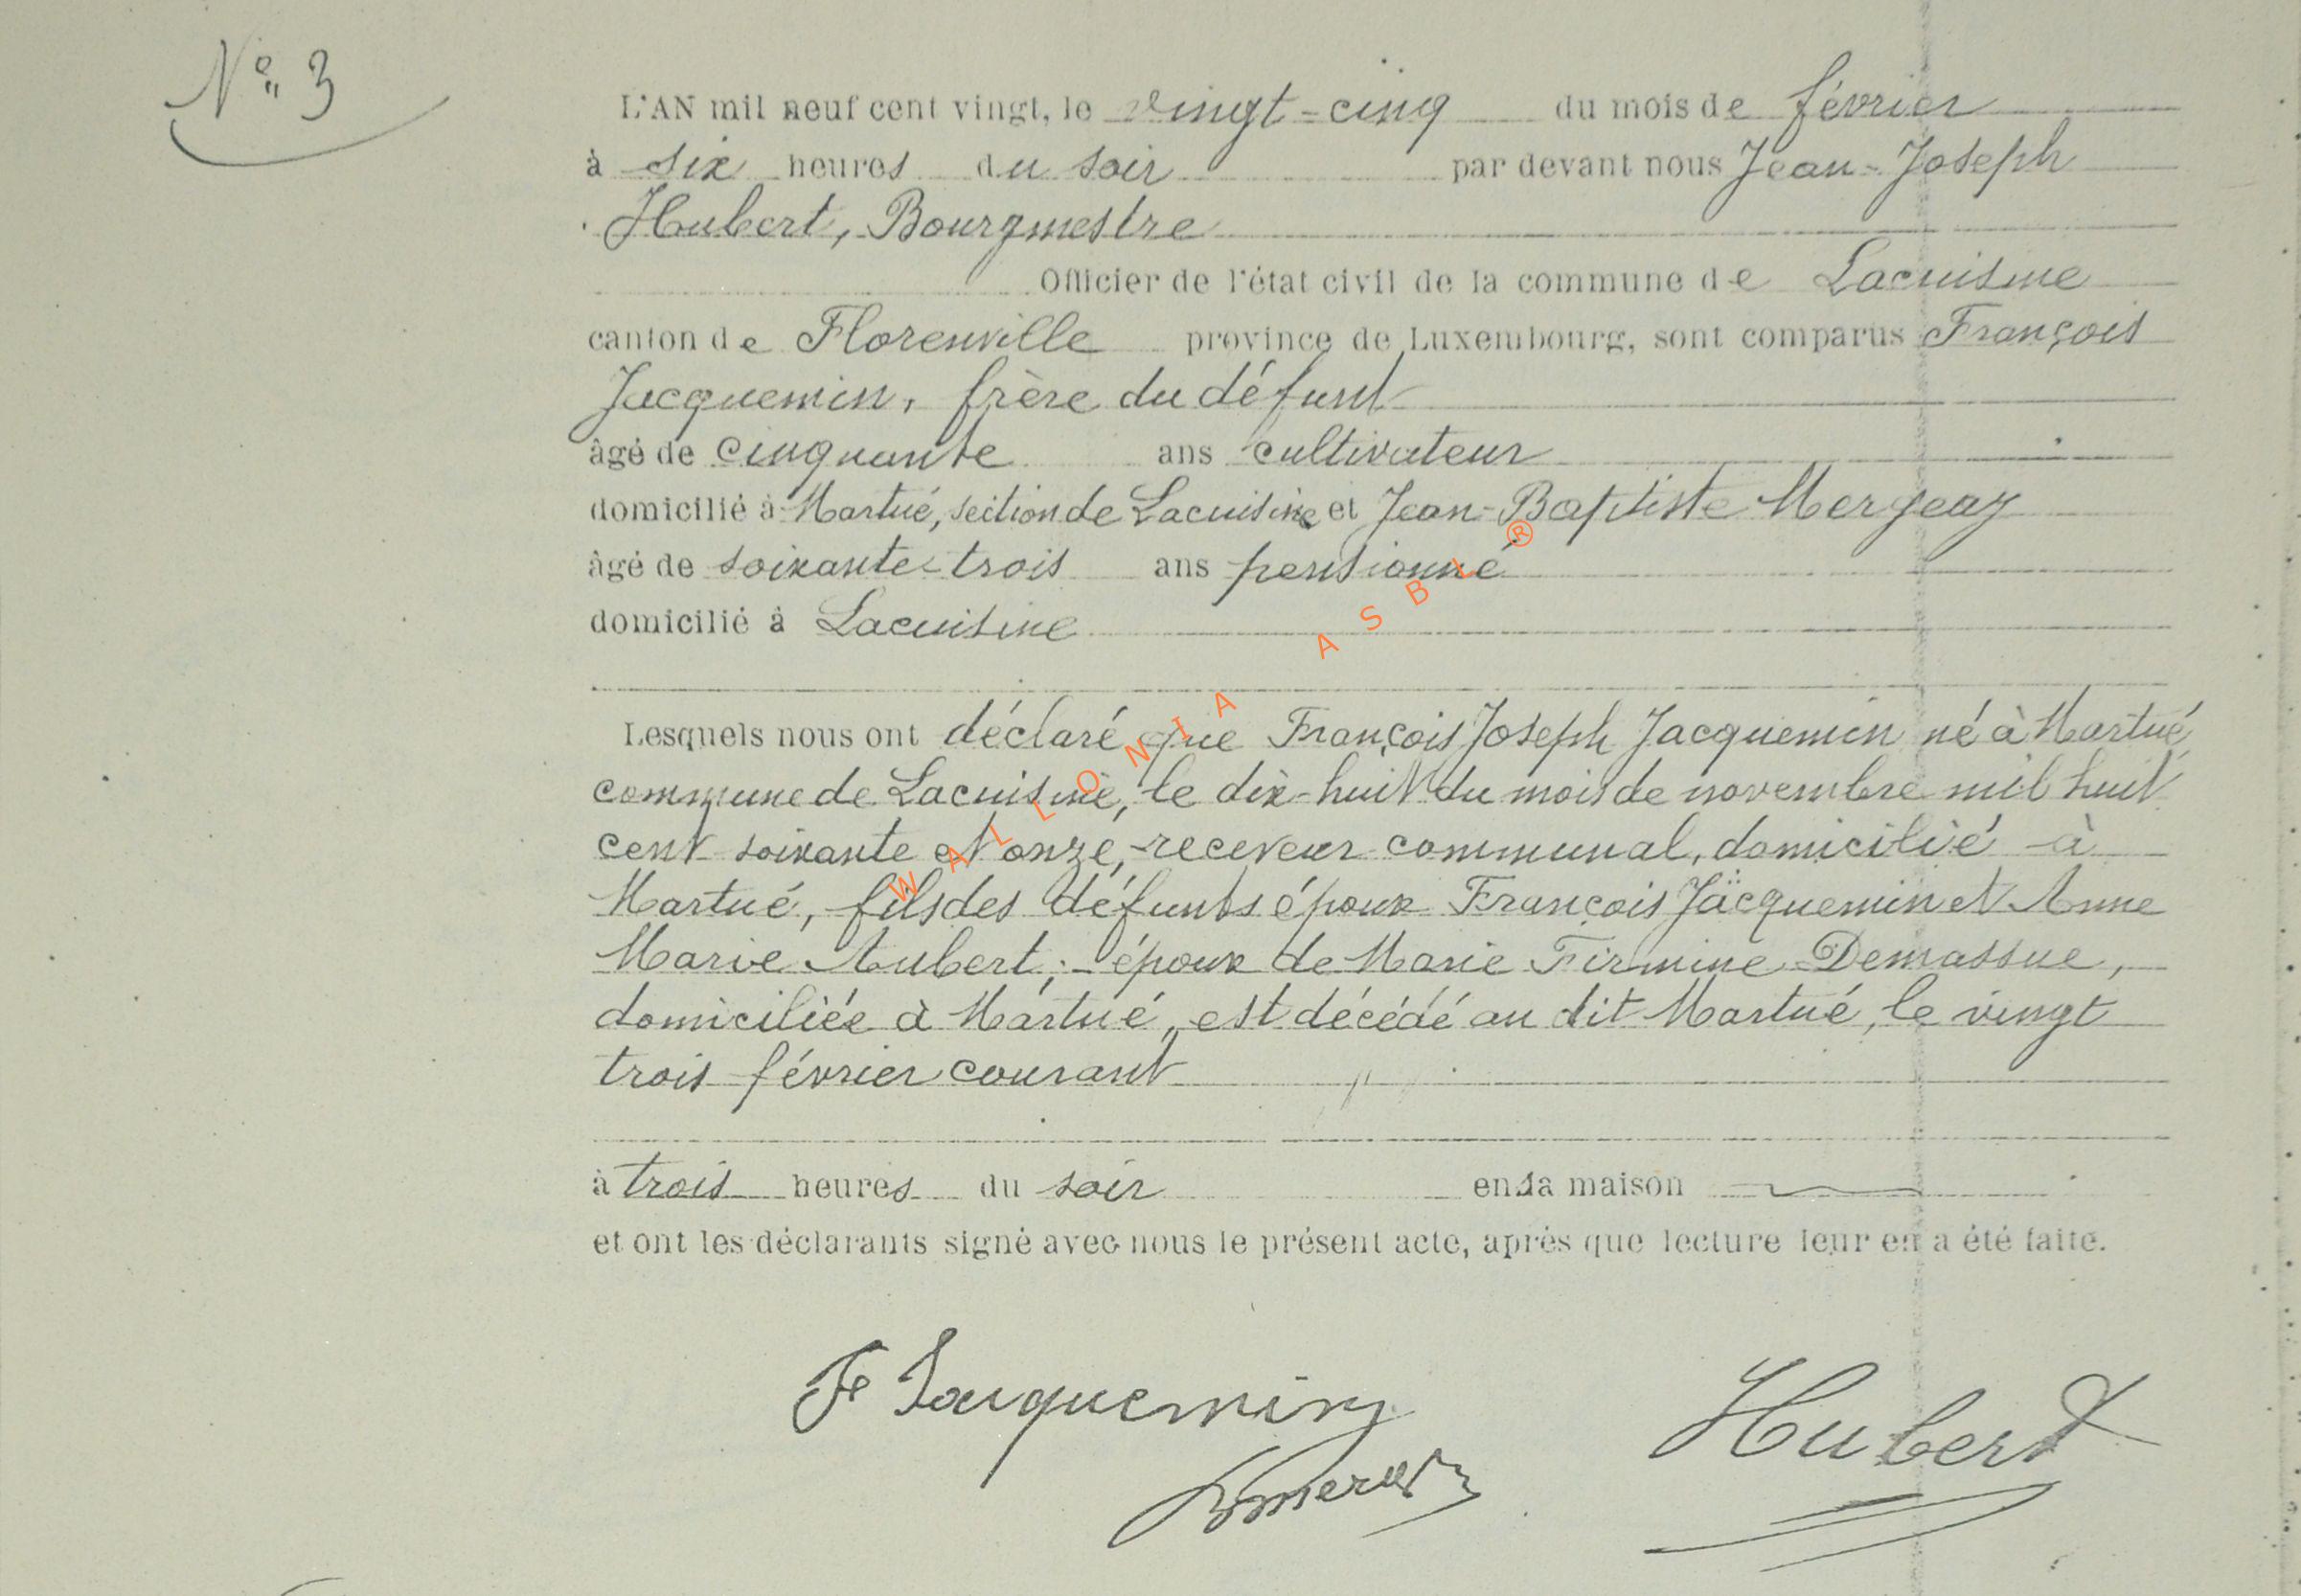 N° 3
L'AN mil neuf cent vingt, le vingt-cinq du mois de février
à six heures du soir par devant nous Jean-Joseph
Hubert, Bourgmestre
Officier de l'état civil de la commune de Lacuisine
canton de Florenville province de Luxembourg, sont comparus François
Jacquemin, frère du défunt
âgé de cinquante ans cultivateur
domicilié à Martué, section de Lacuisine et Jean-Baptiste Mergeay
âgé de soixante-trois ans pensionné
domicilié à Lacuisine
Lesquels nous ont déclaré que François Joseph Jacquemin né à Martué,
commune de Lacuisine, le dix-huit du mois de novembre mil huit
cent soixante et onze, receveur communal, domicilié à
Martué, fils des défunts époux François Jacquemin et Anne
Marie Aubert; époux de Marie Firmine Demassue,
domiciliée à Martué, est décédé au dit Martué, le vingt
trois février courant
à trois heures du soir en sa maison
et ont les déclarants signé avec nous le présent acte, après que lecture leur en a été faite.
Fs Jacquemin
Hubert
WALLONIA ASBL ®